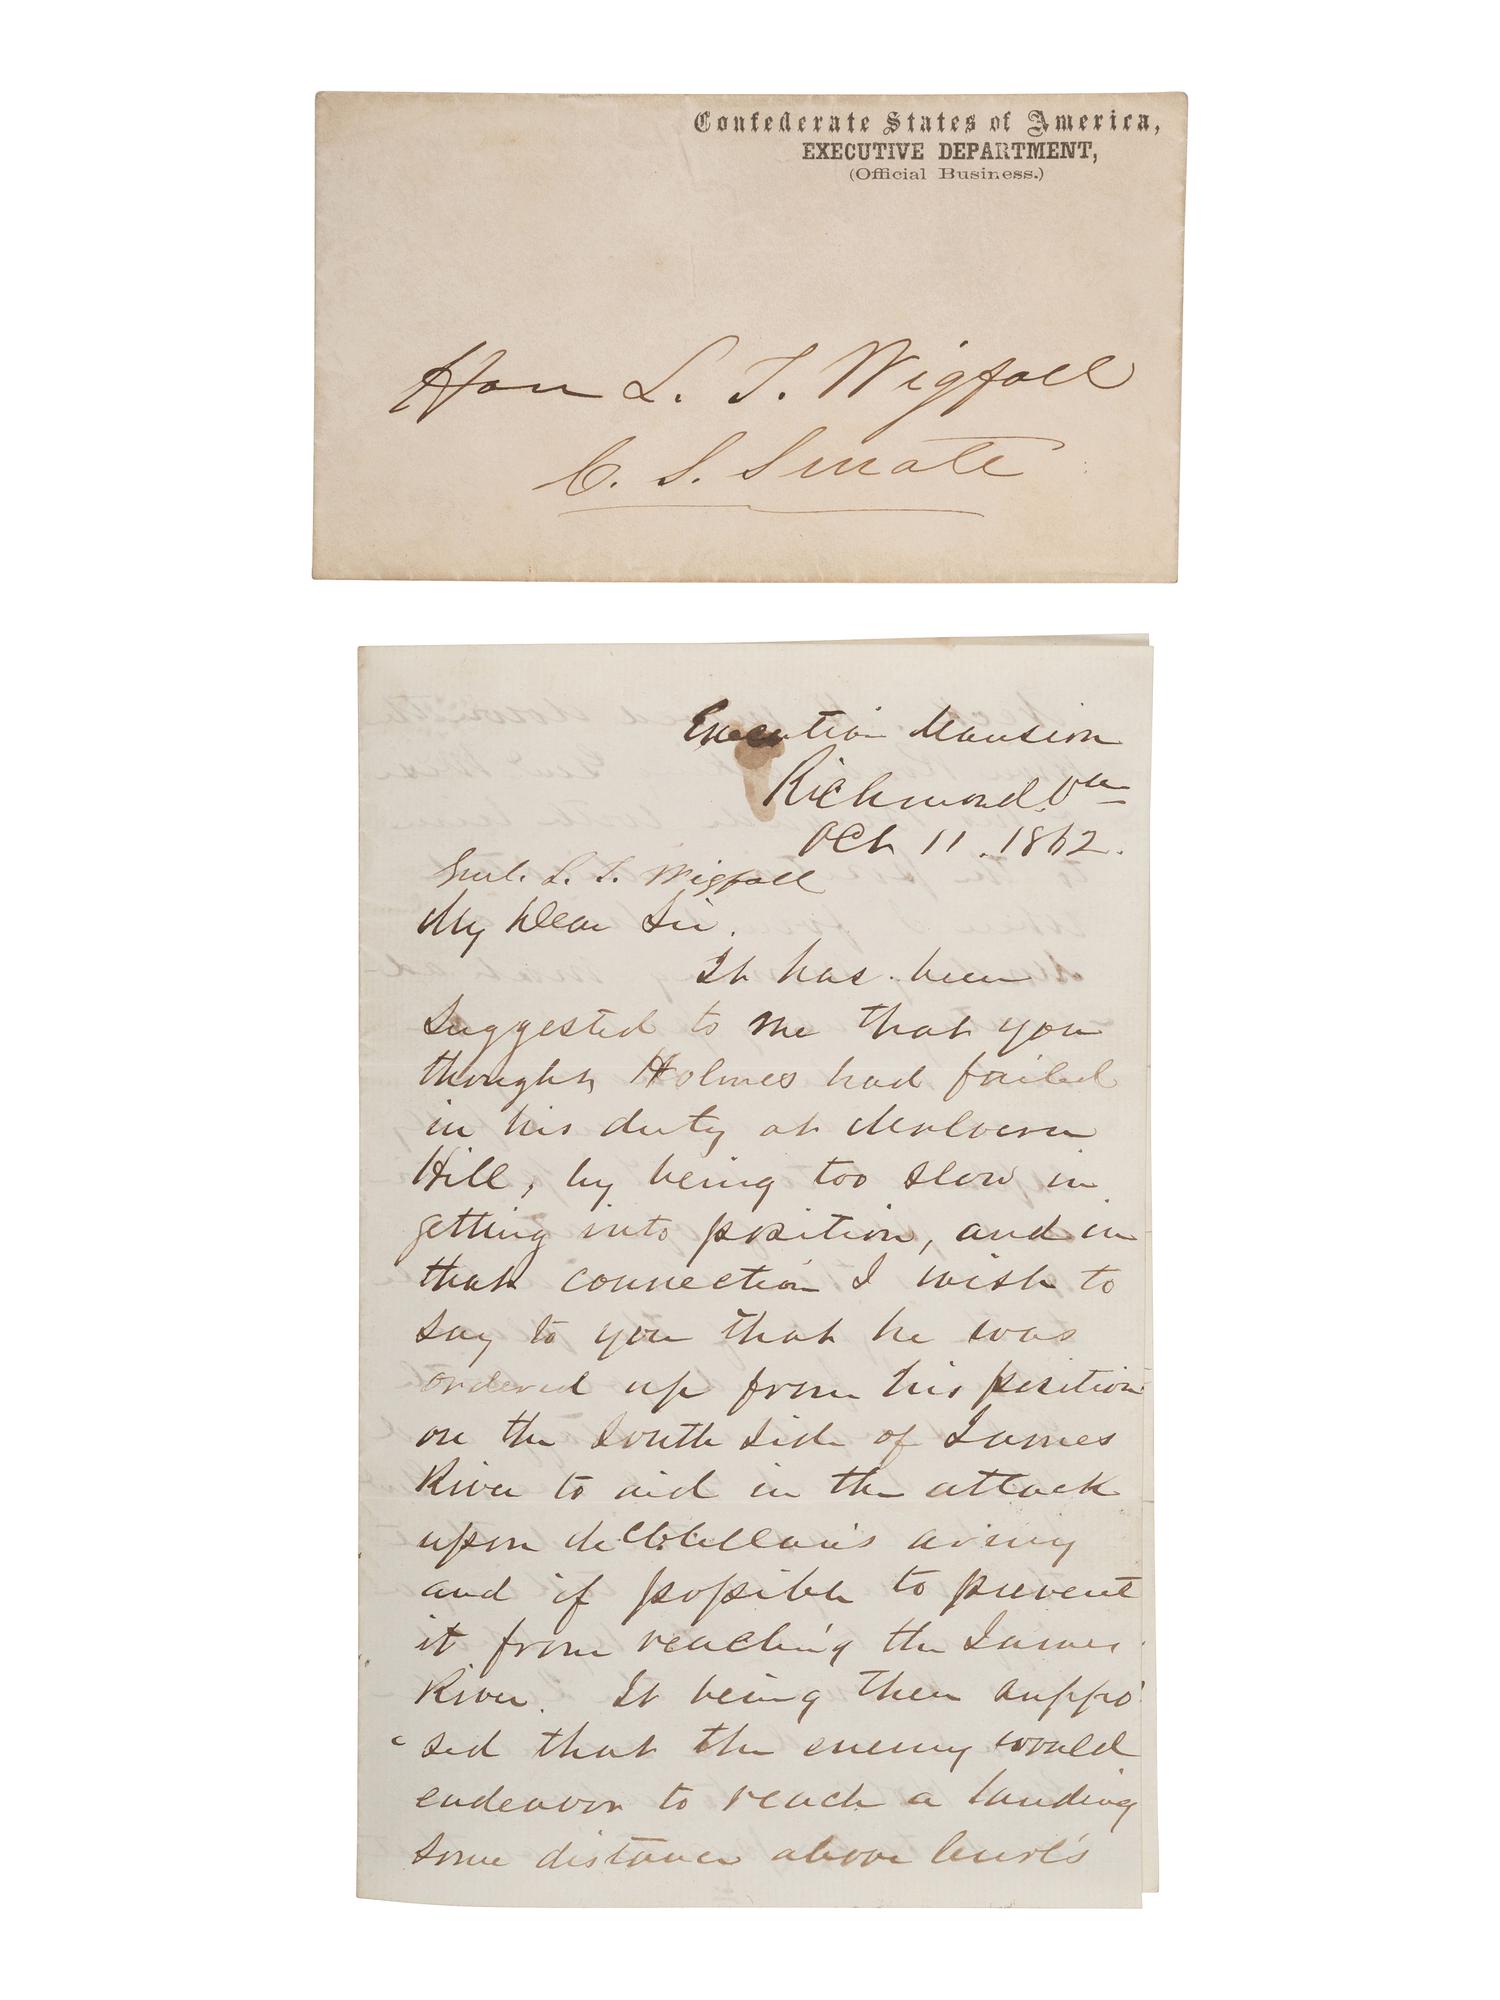 Confederate States of America,
EXECUTIVE DEPARTMENT,
(Official Business.)
Hon L. T. Wigfall
C. S. Senate
Executive Mansion
Richmond, Va
Oct 11. 1862.
Genl. L. T. Wigfall
My Dear Sir.
It has been
suggested to me that you
thought Holmes had failed
in his duty at Malvern
Hill, by being too slow in
getting into position, and in
that connection I wish to
say to you that he was
ordered up from his position
on the South side of James
River to aid in the attack
upon McClellan's army
and if possible to prevent
it from reaching the James
River. It being then suppo
sed that the enemy would
endeavor to reach a landing
some distance above Curl's